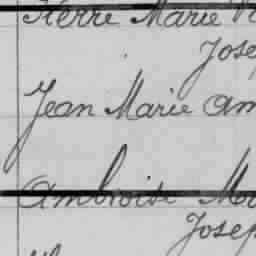 Pierre Marie
Jose
Jean Marie Am
Ambroise Ma
Josep